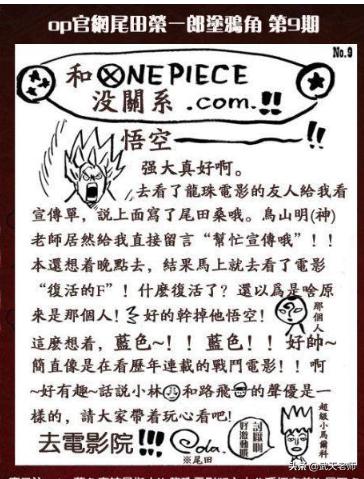 op官網尾田榮一郎塗鴉角 第9期
No.9
和ONEPIECE
没關系.com.!!
悟空——!!
强大真好啊。
去看了龍珠電影的友人給我看
宣傳單，說上面寫了尾田桑哦。鳥山明(神)
老師居然給我直接留言“幫忙宣傳哦”！！
本還想着晚點去，結果馬上就去看了電影
“復活的F”！什麽復活了？還以爲是啥原
來是那個人！好的幹掉他悟空！
那個人
這麽想着，藍色~！！藍色！！好帥~
簡直像是在看歷年連載的戰鬥電影！！啊
~好有趣~話說小林和路飛的聲優是一
樣的，請大家帶着玩心看吧！
去電影院!!!
Oda.
※尾田
討厭啊
好激動哦
超級小馬爾科
头条@武天老师